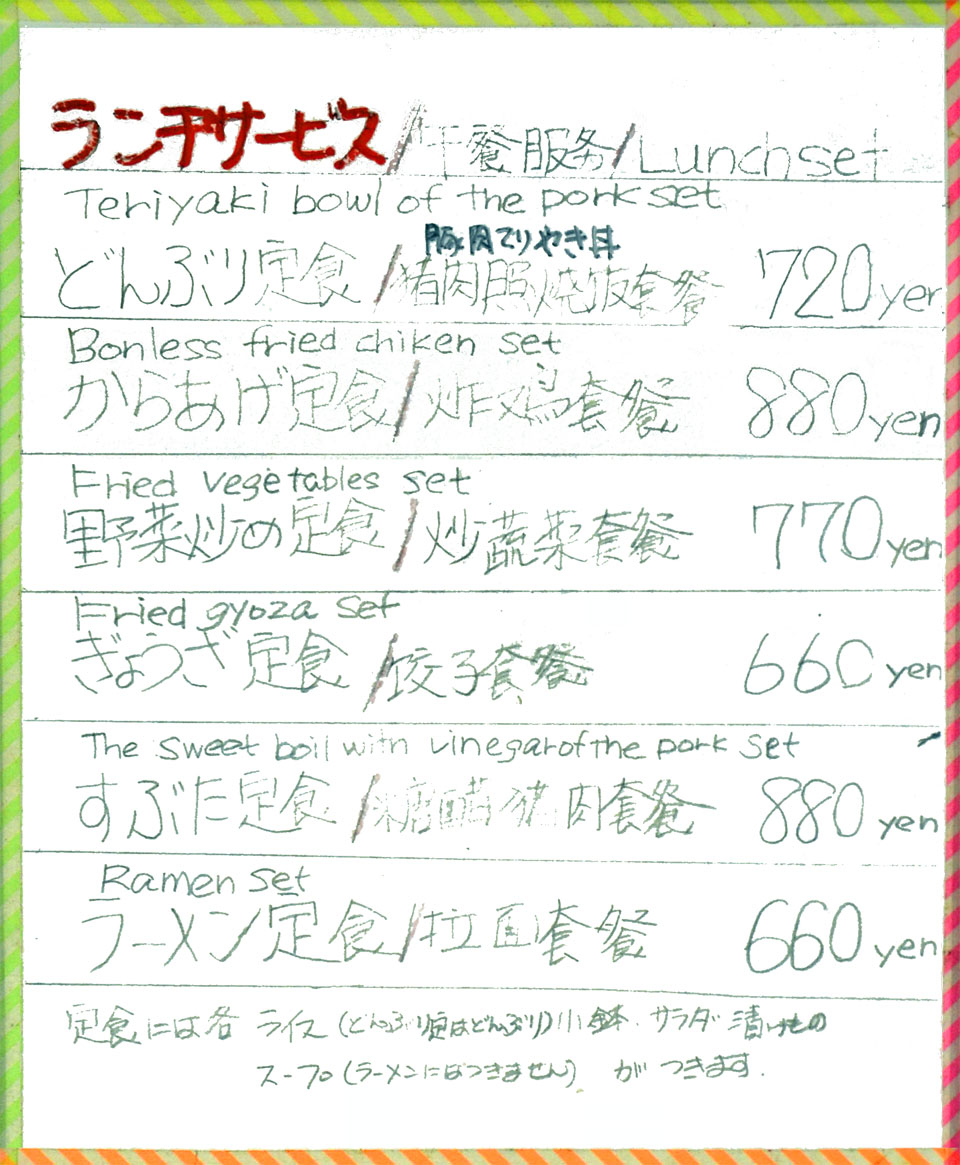 ランチサービス/午餐服务/Lunch set
Teriyaki bowl of the pork set
豚肉てりやき丼
どんぶり定食/猪肉照烧饭套餐 720yen
Bonless fried chiken set
からあげ定食/炸鸡套餐 880yen
Fried vegetables set
野菜炒め定食/炒蔬菜套餐 770yen
Fried gyoza set
ぎょうざ定食/饺子套餐 660yen
The sweet boil with vinegar of the pork set
すぶた定食/糖醋猪肉套餐 880yen
Ramen set
ラーメン定食/拉面套餐 660yen
定食には各 ライス(どんぶり定はどんぶり)小鉢、サラダ 漬けもの
スープ(ラーメンにはつきません) がつきます.